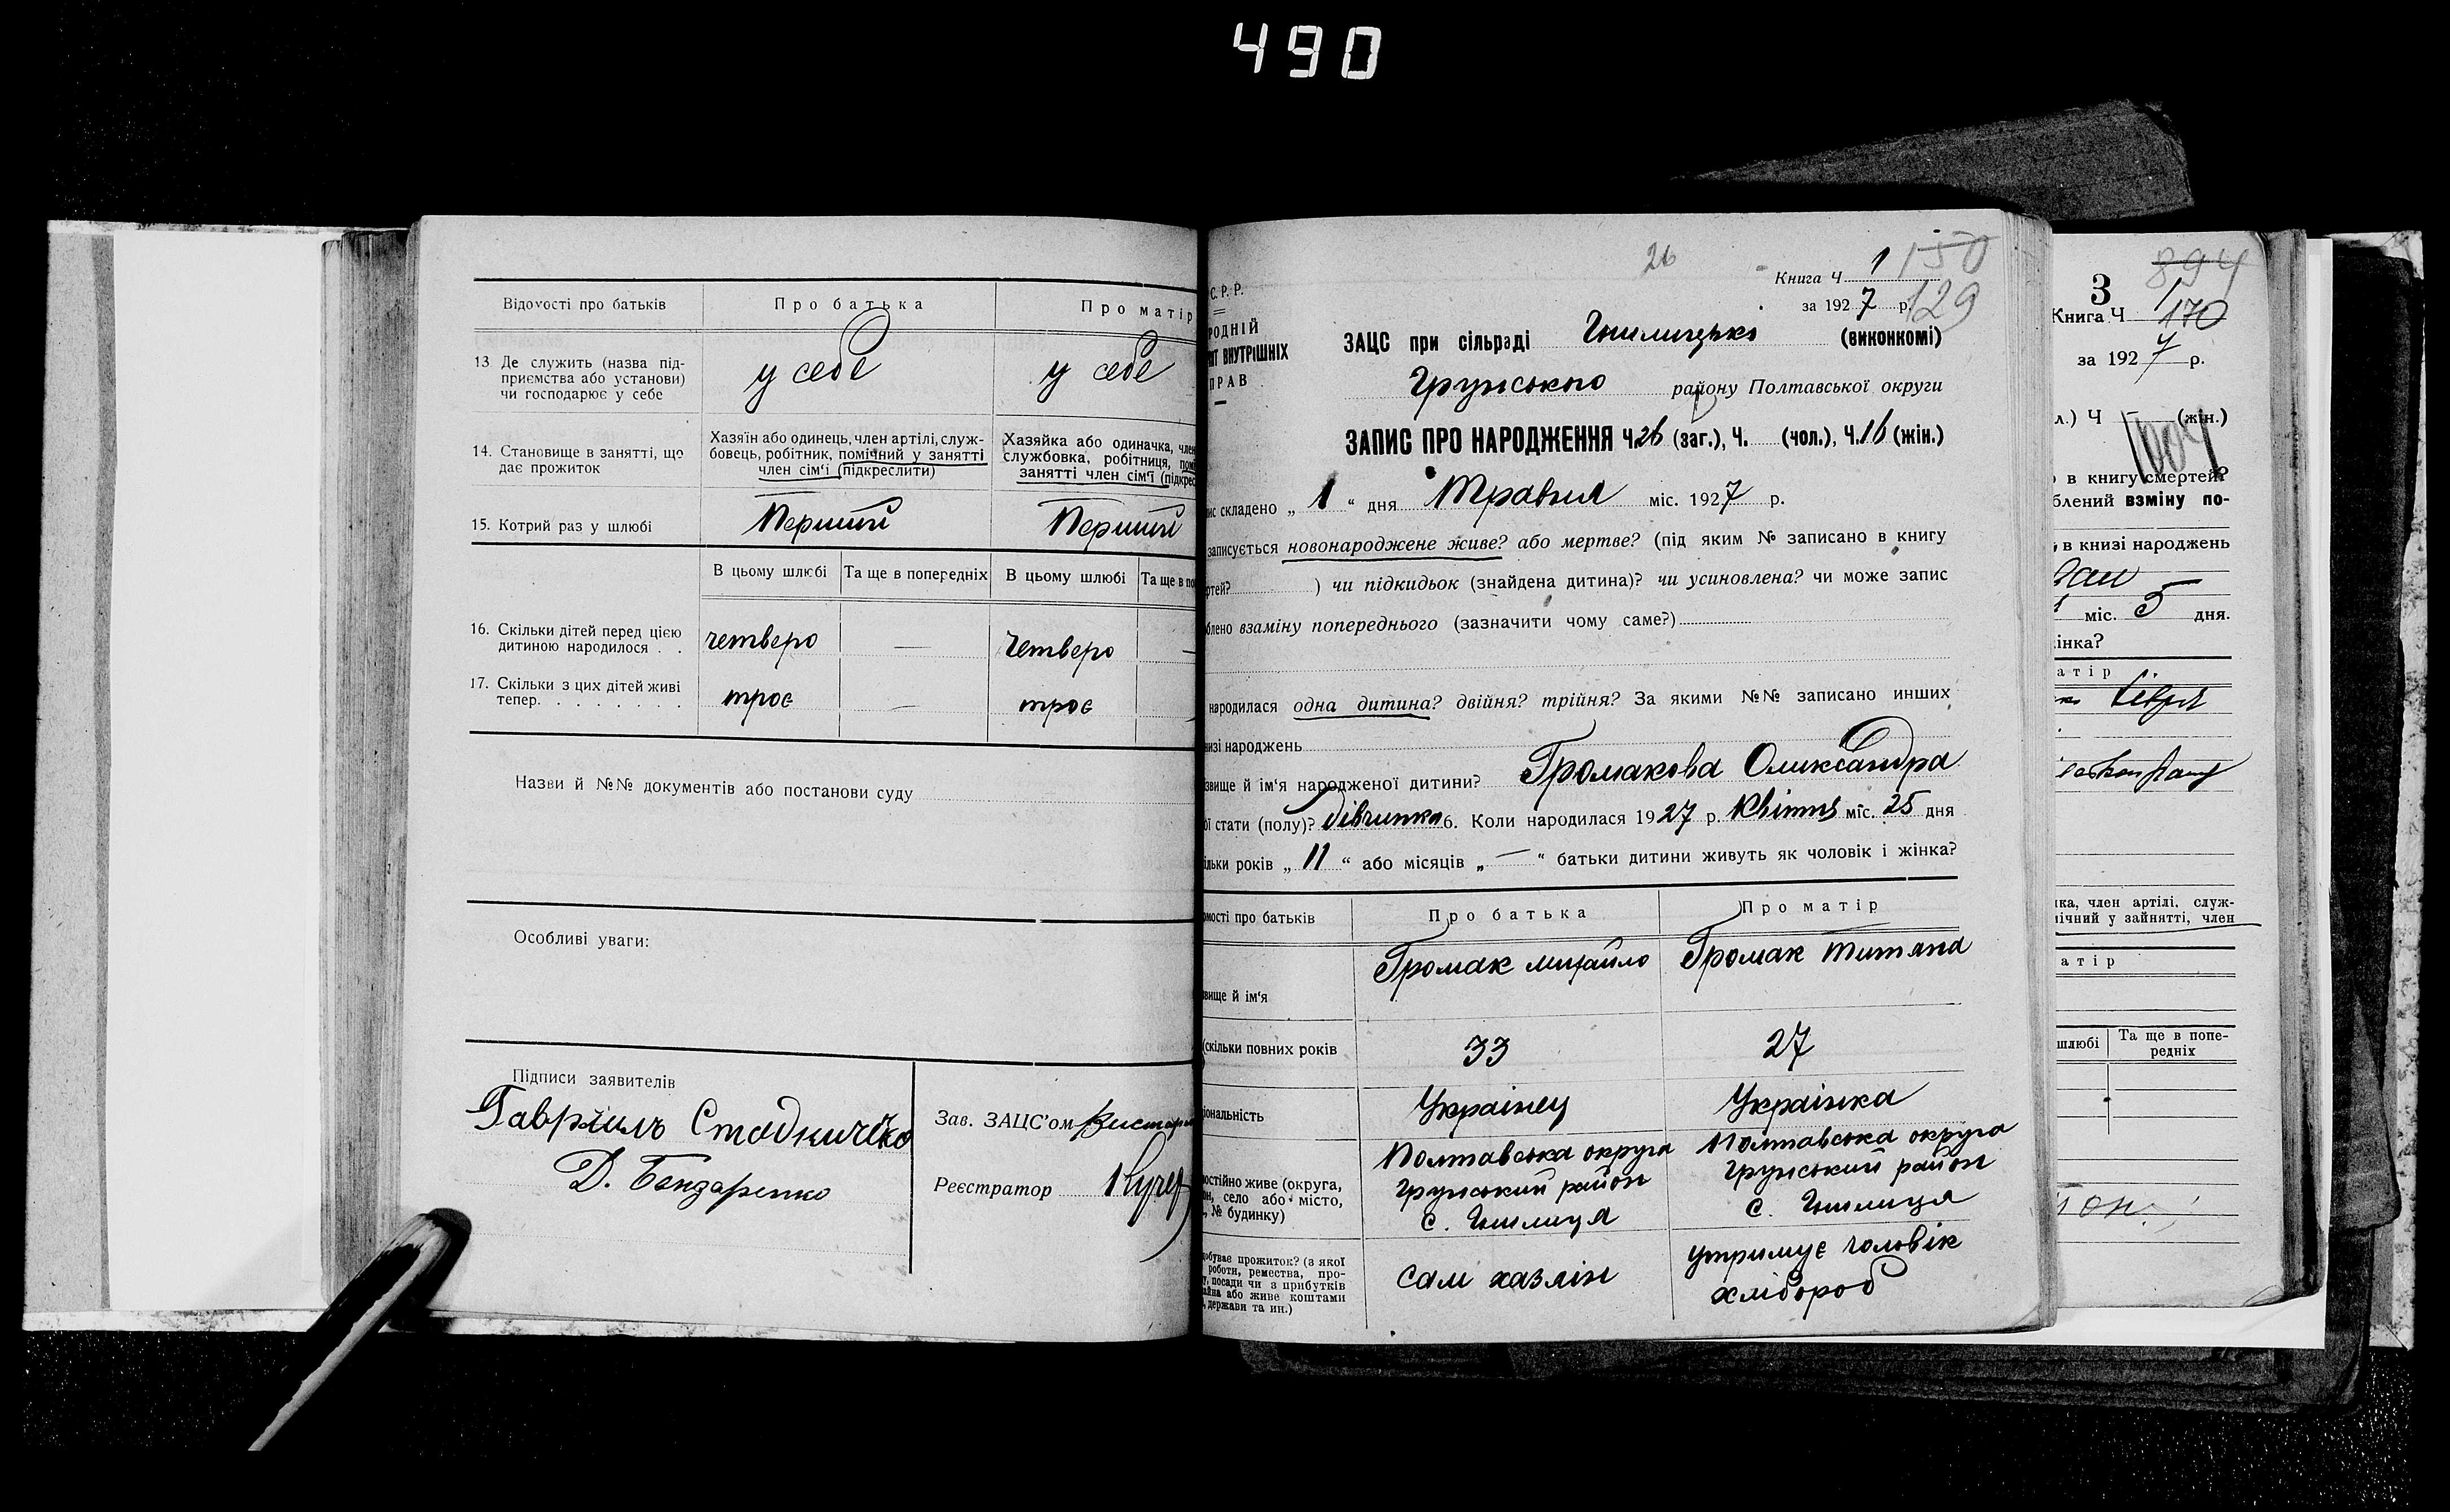 490
Відомості про батьків
Про батька
Про матір
13. Де служить (назва під-
приємства або установи)
чи господарює у себе
у себе
у себе
14. Становище в занятті, що
дає прожиток
Хазяїн або одинець, член артілі, служ-
бовець, робітник, помічний у занятті
член сім'ї (підкреслити)
Хазяйка або одиначка, член
службовка, робітниця, пом
занятті член сім'ї (підкрес
15. Котрий раз у шлюбі
Перший
Перший
В цьому шлюбі
Та ще в попередніх
В цьому шлюбі
Та ще в по
16. Скільки дітей перед цією
дитиною народилося . .
четверо
—
четверо
—
17. Скільки з цих дітей живі
тепер. . . . . . . .
троє
—
троє
Назви й №№ документів або постанови суду
Особливі уваги:
Підписи заявителів
Гавриилъ
Д. Бондаренко
Зав. ЗАЦС'ом
Реєстратор
26
Книга Ч. 1
150
за 1927 р.
129
С. Р. Р.
РОДНІЙ
ВНУТРІШНІХ
ПРАВ
ЗАЦС при сільраді (виконкомі)
Грунського району Полтавської округи
ЗАПИС ПРО НАРОДЖЕННЯ Ч. 26 (заг.), Ч. (чол.), Ч. 16 (жін.)
ис складено „ 1 “ дня Травня міс. 1927 р.
записується новонароджене живе? або мертве? (під яким № записано в книгу
ртей? ) чи підкидьок (знайдена дитина)? чи усиновлена? чи може запис
блено взаміну попереднього (зазначити чому саме?)
народилася одна дитина? двійня? трійня? За якими №№ записано инших
низі народжень
звище й ім'я народженої дитини? Громакова Олександра
ої стати (полу)? дівчинка 6. Коли народилася 1927 р. Квітня міс. 25 дня
ільки років „ 11 “ або місяців „ — “ батьки дитини живуть як чоловік і жінка?
омості про батьків
Про батька
Про матір
звище й ім'я
Громак Михайло
Громак Титяна
(скільки повних років
33
27
ціональність
Українец
Українка
постійно живе (округа,
он, село або місто,
, № будинку)
Полтавська округа
Грунський район
Полтавська округа
Грунський район
добуває прожиток? (з якої
роботи, ремества, про-
у, посади чи з прибутків
айна або живе коштами
, держави та ин.)
сам хазяїн
утримує чоловік
хлібороб
894
3
Книга Ч. 1
170
за 1927 р.
л.) Ч — (жін.)
в книгу смертей?
блений взміну по-
в книзі народжень
міс. 5 дня.
інка?
атір
ка, член артілі, служ-
мічний у зайнятті, член
атір
шлюбі
Та ще в попе-
редніх